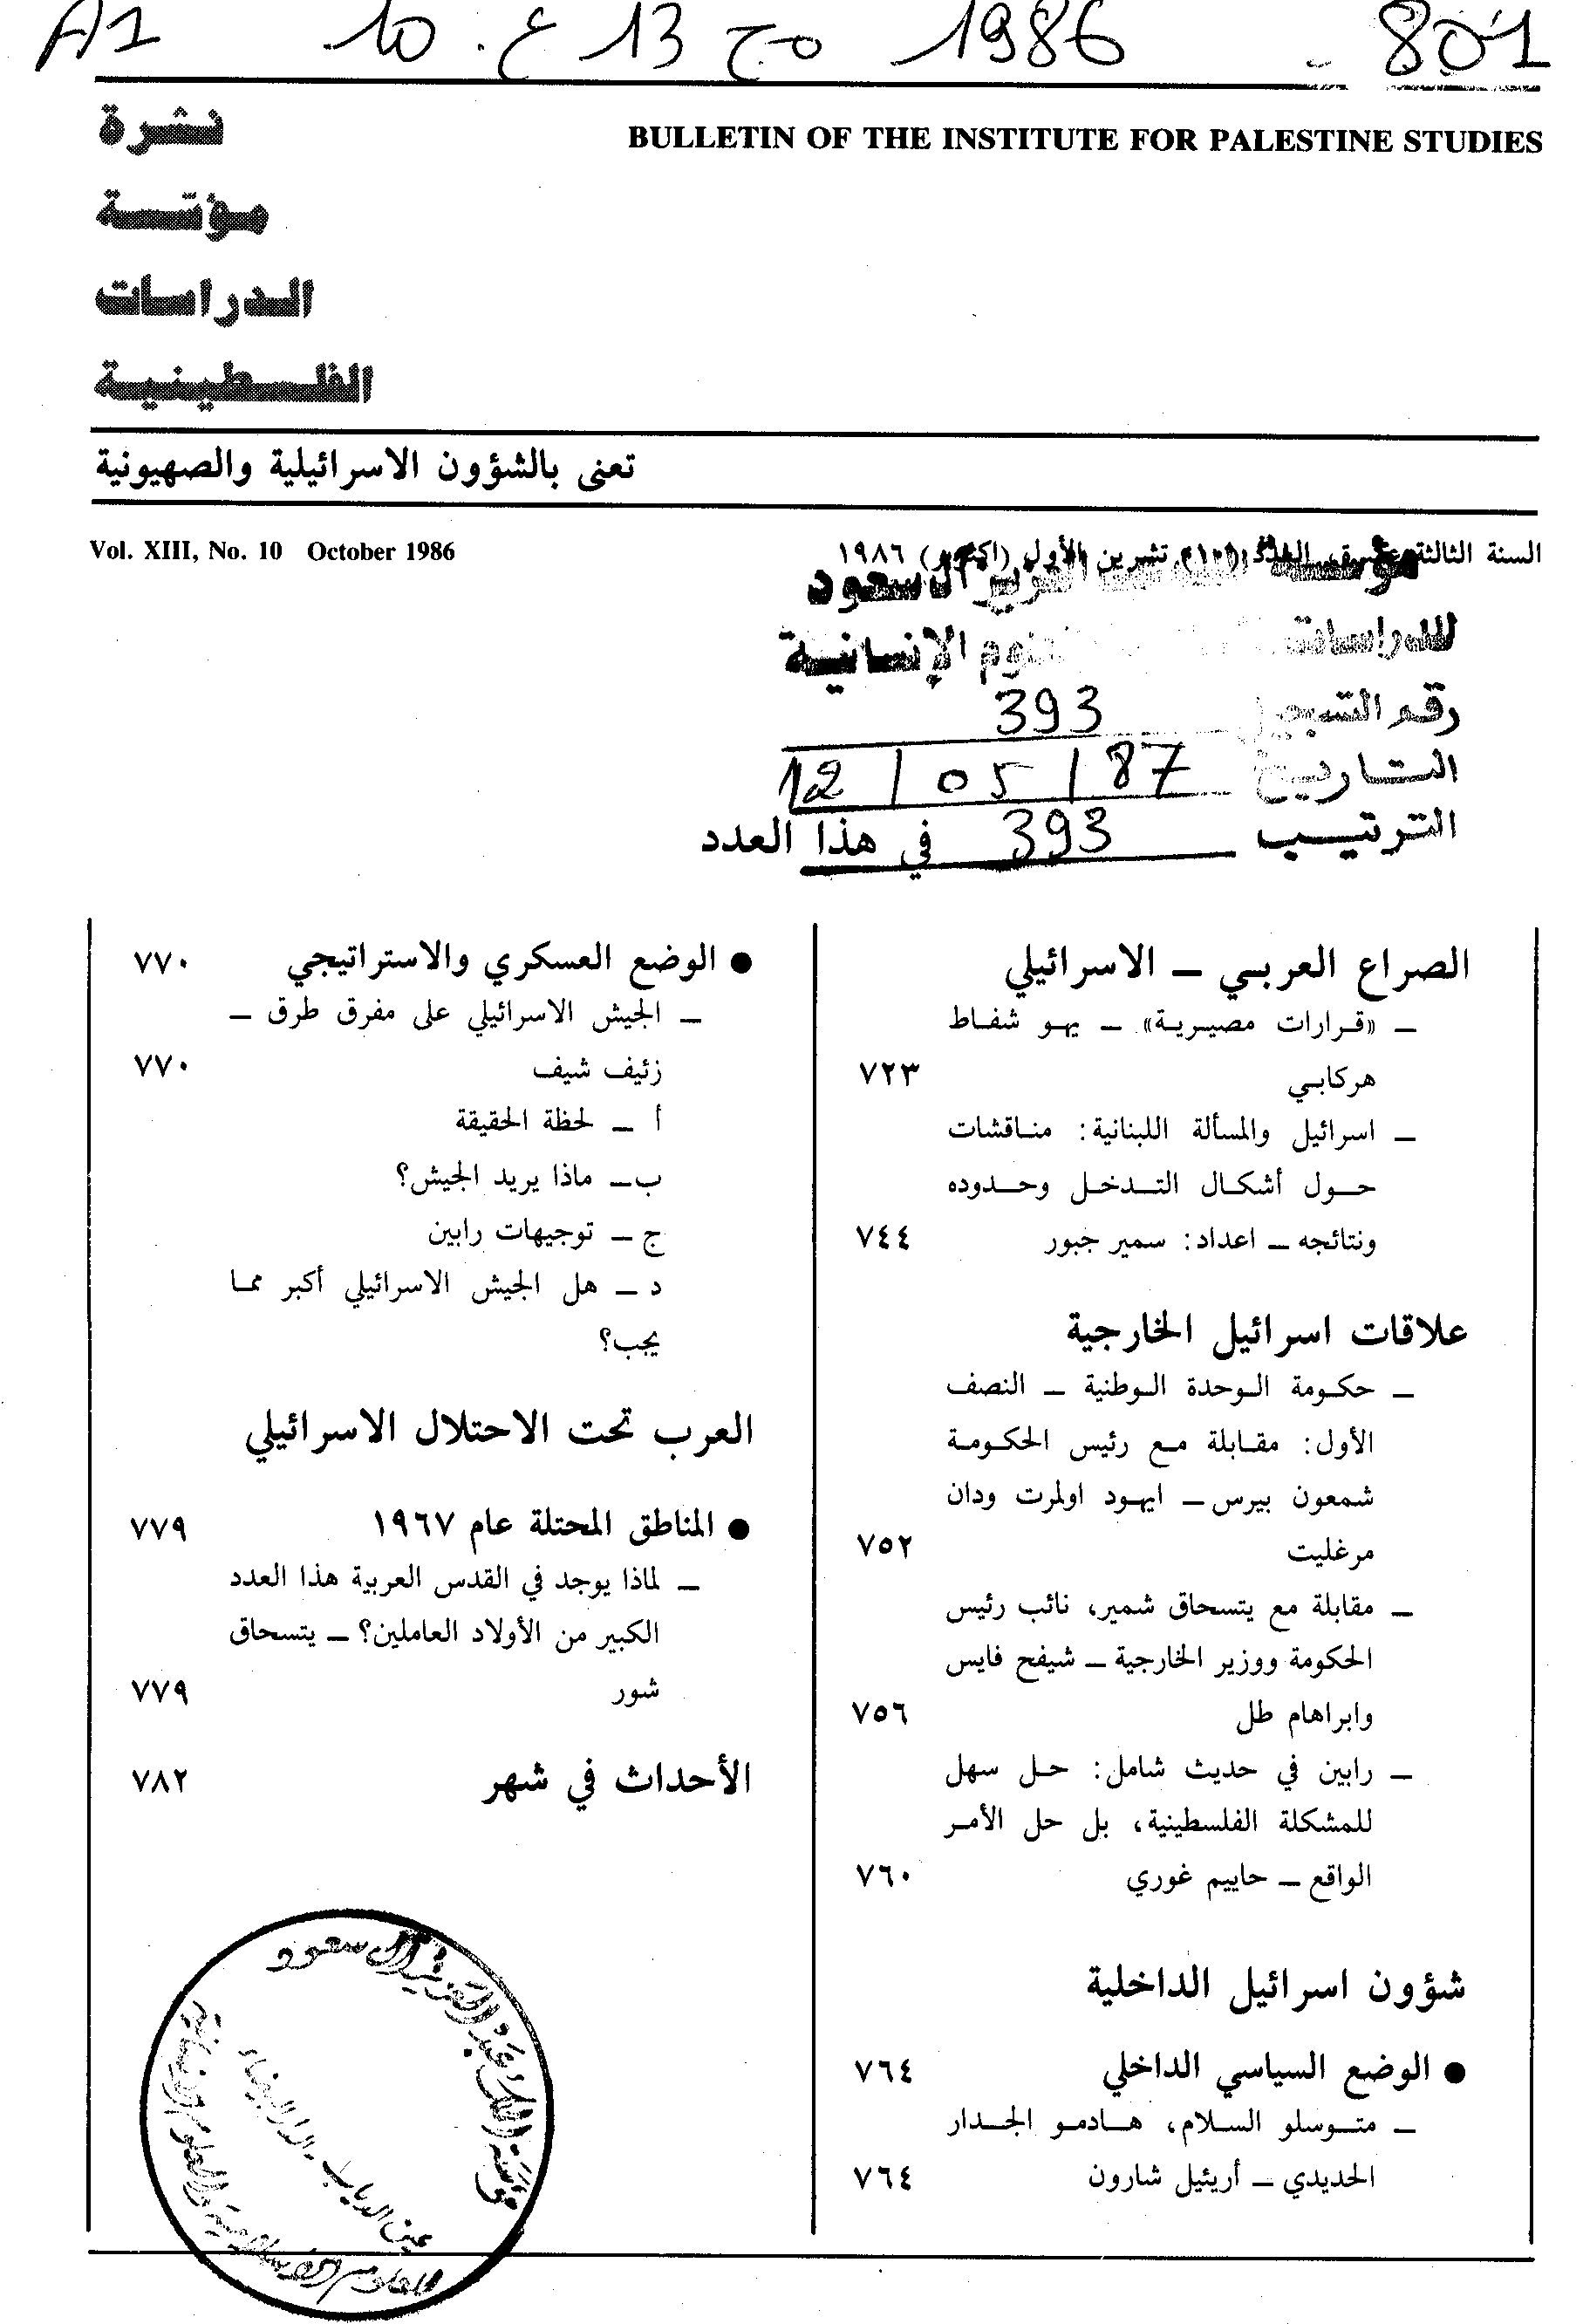 A1 10 ع. 13 مج 1986 - 801
نشرة
مؤسسة
الدراسات
الفلسطينية
BULLETIN OF THE INSTITUTE FOR PALESTINE STUDIES
تعنى بالشؤون الاسرائيلية والصهيونية
السنة الثالثة عشرة، العدد (١٠)، تشرين الأول (اكتوبر) ١٩٨٦
Vol. XIII, No. 10 October 1986
آل سعود
للدراسات الإنسانية
رقم التسجيل 393
التاريخ 12/05/87
الترتيب 393
في هذا العدد
الصراع العربي – الاسرائيلي
– «قرارات مصيرية» – يهو شفاط
هركابي ٧٢٣
– اسرائيل والمسألة اللبنانية: مناقشات
حول أشكال التدخل وحدوده
ونتائجه – اعداد: سمير جبور ٧٤٤
علاقات اسرائيل الخارجية
– حكومة الوحدة الوطنية – النصف
الأول: مقابلة مع رئيس الحكومة
شمعون بيرس – ايهود اولمرت ودان
مرغليت ٧٥٢
– مقابلة مع يتسحاق شمير، نائب رئيس
الحكومة ووزير الخارجية – شيفح فايس
وابراهام طل ٧٥٦
– رابين في حديث شامل: حل سهل
للمشكلة الفلسطينية، بل حل الأمر
الواقع – حاييم غوري ٧٦٠
شؤون اسرائيل الداخلية
● الوضع السياسي الداخلي ٧٦٤
– متوسلو السلام، هادمو الجدار
الحديدي – أريئيل شارون ٧٦٤
● الوضع العسكري والاستراتيجي ٧٧٠
– الجيش الاسرائيلي على مفرق طرق –
زئيف شيف ٧٧٠
أ – لحظة الحقيقة
ب – ماذا يريد الجيش؟
ج – توجيهات رابين
د – هل الجيش الاسرائيلي أكبر مما
يجب؟
العرب تحت الاحتلال الاسرائيلي
● المناطق المحتلة عام ١٩٦٧ ٧٧٩
– لماذا يوجد في القدس العربية هذا العدد
الكبير من الأولاد العاملين؟ – يتسحاق
شور ٧٧٩
الأحداث في شهر ٧٨٢
مؤسسة الملك عبد العزيز آل سعود
عين الدياب - الدار البيضاء